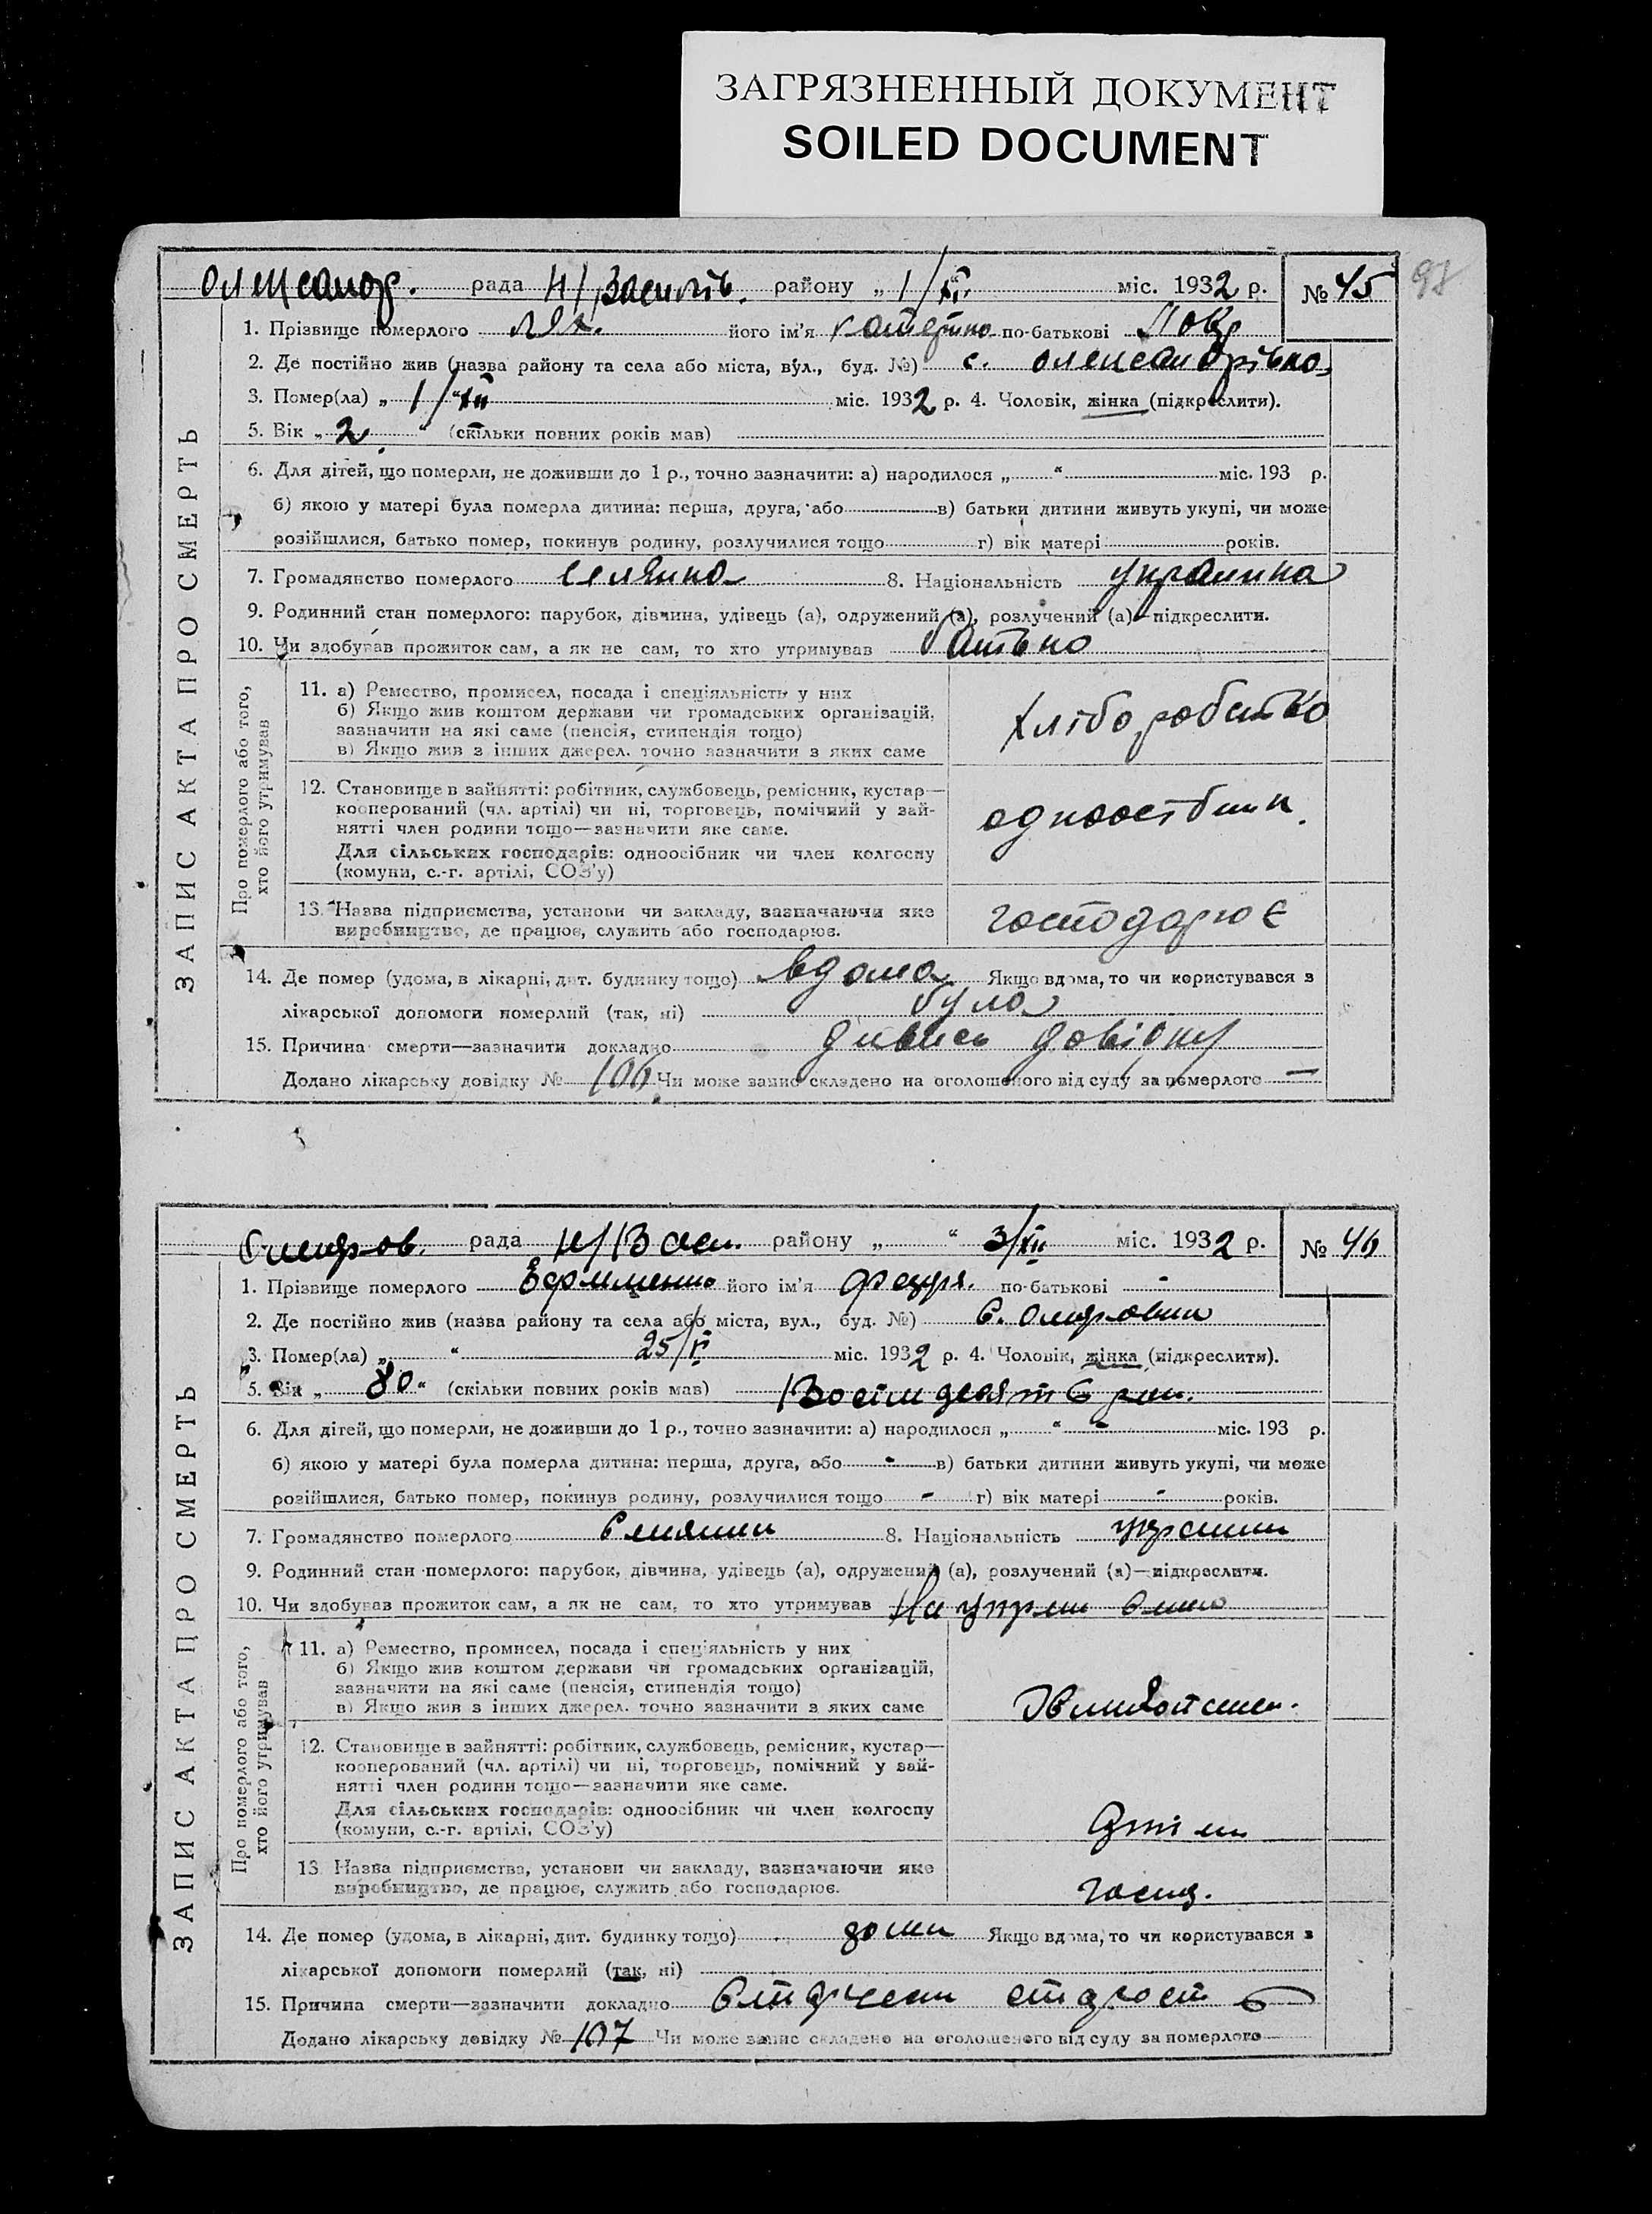 ЗАГРЯЗНЕННЫЙ ДОКУМЕНТ
SOILED DOCUMENT
97
ЗАПИС АКТА ПРО СМЕРТЬ
рада Н/Василів. району „ 1/XII міс. 1932 р. № 45
1. Прізвище померлого Лях. його ім'я Катерина по-батькові
2. Де постійно жив (назва району та села або міста, вул., буд. №) с. Олександрівка,
3. Помер(ла) „ 1/XII міс. 1932 р. 4. Чоловік, жінка (підкреслити).
5. Вік „ 2 “ (скільки повних років мав)
6. Для дітей, що померли, не доживши до 1 р., точно зазначити: а) народилося „ “ міс. 193 р.
б) якою у матері була померла дитина: перша, друга, або в) батьки дитини живуть укупі, чи може
розійшлися, батько помер, покинув родину, розлучилися тощо г) вік матері років.
7. Громадянство померлого селянка 8. Національність украинка
9. Родинний стан померлого: парубок, дівчина, удівець (а), одружений (а), розлучений (а)—підкреслити.
10. Чи здобував прожиток сам, а як не сам, то хто утримував батько
Про померлого або того, хто його утримував
11. а) Ремество, промисел, посада і спеціяльність у них
б) Якщо жив коштом держави чи громадських організацій,
зазначити на які саме (пенсія, стипендія тощо)
в) Якщо жив з інших джерел. точно зазначити з яких саме
хліборобство
12. Становище в зайнятті: робітник, службовець, ремісник, кустар—
кооперований (чл. артілі) чи ні, торговець, помічний у зай-
нятті член родини тощо—зазначити яке саме.
Для сільських господарів: одноосібник чи член колгоспу
(комуни, с.-г. артілі, СОЗ'у)
одноосібник.
13. Назва підприємства, установи чи закладу, зазначаючи яке
виробництво, де працює, служить або господарює.
господарює
14. Де помер (удома, в лікарні, дит. будинку тощо) вдома Якщо вдома, то чи користувався з
лікарської допомоги померлий (так, ні) була
15. Причина смерти—зазначити докладно дивись довідку
Додано лікарську довідку № 106 Чи може запис складено на оголошеного від суду за померлого —
ЗАПИС АКТА ПРО СМЕРТЬ
рада Н/Вас. району „ “ 3/XII міс. 1932 р. № 46
1. Прізвище померлого його ім'я по-батькові -
2. Де постійно жив (назва району та села або міста, вул., буд. №) с.
3. Помер(ла) „ “ міс. 1932 р. 4. Чоловік, жінка (підкреслити).
5. Вік „ 80 “ (скільки повних років мав) Восімдесять рок.
6. Для дітей, що померли, не доживши до 1 р., точно зазначити: а) народилося „ “ - міс. 193 р.
б) якою у матері була померла дитина: перша, друга, або - в) батьки дитини живуть укупі, чи може
розійшлися, батько помер, покинув родину, розлучилися тощо - г) вік матері - років.
7. Громадянство померлого Селянки 8. Національність
9. Родинний стан померлого: парубок, дівчина, удівець (а), одружений (а), розлучений (а)—підкреслити.
10. Чи здобував прожиток сам, а як не сам, то хто утримував На
Про померлого або того, хто його утримував
11. а) Ремество, промисел, посада і спеціяльність у них
б) Якщо жив коштом держави чи громадських організацій,
зазначити на які саме (пенсія, стипендія тощо)
в) Якщо жив з інших джерел. точно зазначити з яких саме
12. Становище в зайнятті: робітник, службовець, ремісник, кустар—
кооперований (чл. артілі) чи ні, торговець, помічний у зай-
нятті член родини тощо—зазначити яке саме.
Для сільських господарів: одноосібник чи член колгоспу
(комуни, с.-г. артілі, СОЗ'у)
13. Назва підприємства, установи чи закладу, зазначаючи яке
виробництво, де працює, служить або господарює.
Госпд.
14. Де помер (удома, в лікарні, дит. будинку тощо) дома Якщо вдома, то чи користувався з
лікарської допомоги померлий (так, ні)
15. Причина смерти—зазначити докладно старость
Додано лікарську довідку № 107 Чи може запис складено на оголошеного від суду за померлого